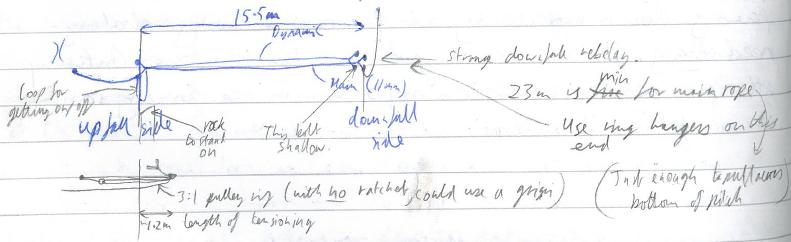 15.5m
Dynamic
X
strong downfall rebelay.
Main (11mm)
loop for
getting on/off
23m is min for main rope
upfall side
rock
to stand
on
This bolt
shallow.
downfall
side
Use ring hangers on this
end
3:1 pulley rig (with no ratchet, could use a grigri)
(Just enough to pull across
bottom of pitch)
~1.2m length of tensioning